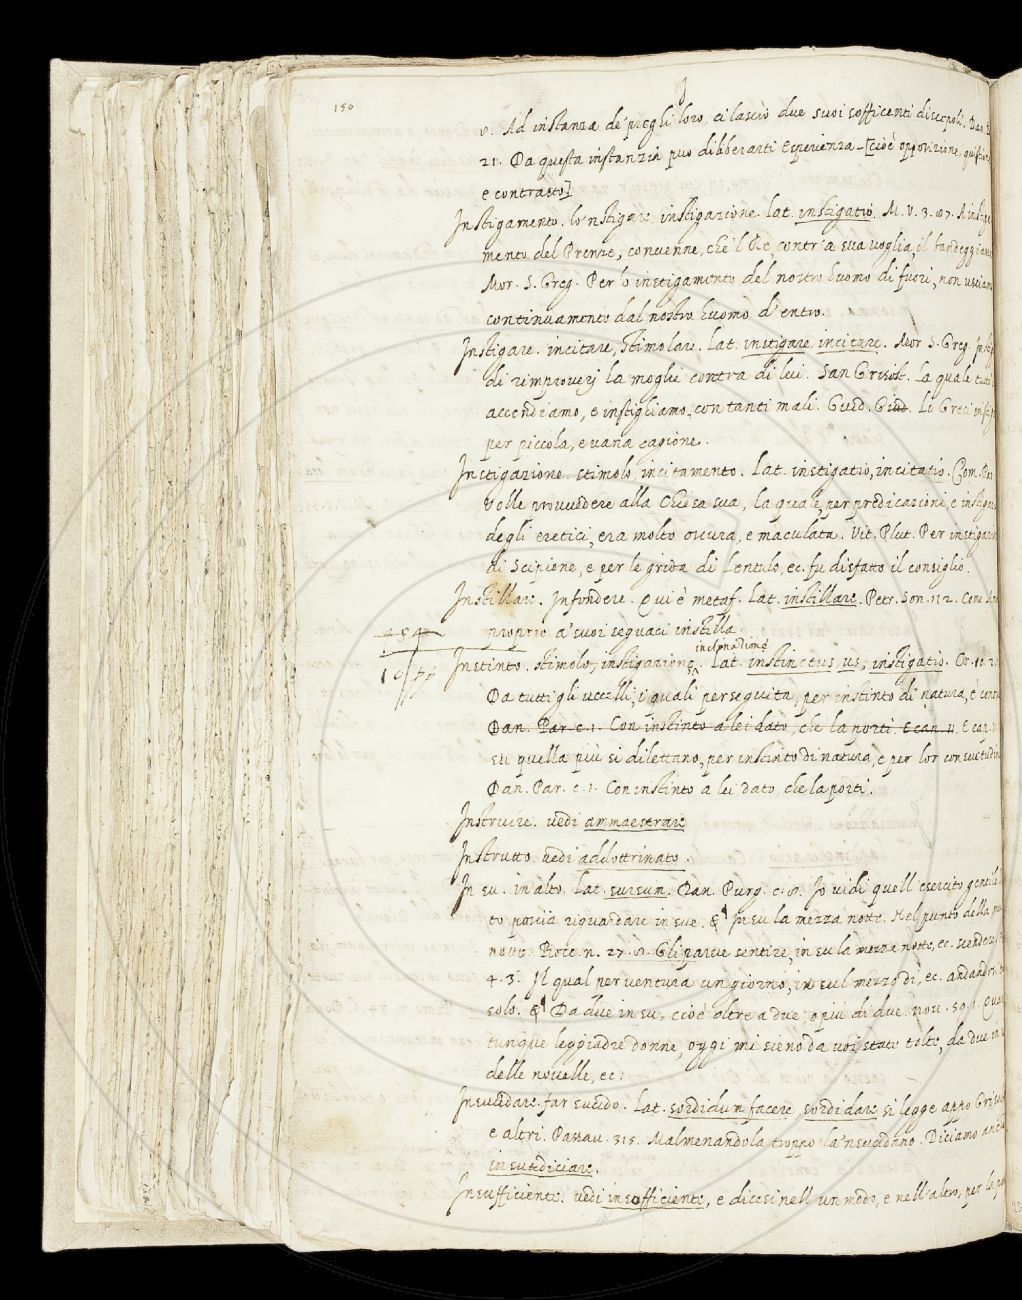 150
I
8. Ad instanza de' prieghi loro, ci lasciò due suoi sofficenti discepoli. Dan.
21. Da questa instanzia può diliberarti Esperienza [cioè opposizione, quistione
e contrasto]
Instigamento. lo 'nstigare, instigazione. lat. instigatio. M. V. 3. 87. A instiga
mento del Prenze, convenne, che 'l Re, contr' a sua voglia, il bandeggiasse
Mor. S. Greg. Per lo instigamento del nostro huomo di fuori, non usciamo
continuamente dal nostro huomo d'entro.
Instigare. incitare, stimolare. lat. instigare, incitare. Mor. S. Greg.
di rimproverj la moglie contra di lui. San Grisost. La quale tutti
accendiamo, e instighiamo, con tanti mali. Guid. Giud. Li Greci
per piccola, e vana cagione.
Instigazione. stimolo, incitamento. lat. instigatio, incitatio. Com. Par.
Volle provvedere alla Chiesa sua, la quale, per predicazioni, e
degli eretici, era molto oscura, e maculata. Vit. Plut. Per
di Scipione, e per le grida di Lentulo, ec. fu disfatto il consiglio.
Instillare. Infondere. Qui è metaf. Lat. instillare. Petr. Son. 112. Come
proprio a' suoi seguaci instilla.
inclinazione
Instinto. stimolo, instigazione. Lat. instinctus, us, instigatio. Cr. 10. 2.
Da tutti gli uccelli, i quali perseguita, per instinto di natura, è
Dan. Par. c. 1. Con instinto a lei dato, che la porti. E can. 11. E cap.
su quella più si dilettano, per instinto di natura, e per lor consuetudine
Dan. Par. c. 1. Con instinto a lei dato, che la porti.
Instruire. vedi ammaestrare
Instrutto. vedi addottrinato.
In su. in alto. Lat. sursum. Dan. Purg. c. 8. Io vidi quell' esercito gentile
to poscia riguardare in sue. In su la mezza notte. Nel punto della
notte. Bocc. n. 27. 8. Gli parve sentire, in su la mezza notte, ec. scendere
4. 3. Il qual per ventura un giorno, in sul mezzo dì, ec. andandosi
solo. Da due in su, cioè oltre a due, o più di due. nov. 59. 1.
tunque leggiadre donne, oggi mi sieno da voi state tolte, da due in
delle novelle, ec.
Insucidare. far sucido. Lat. sordidum facere, sordidare si legge appo
e altri. Passav. 315. Malmenandola troppo la 'nsucidano. Diciamo
insudiciare.
Insufficiente. vedi insofficiente, e dicesi nell' un modo, e nell' altro, per